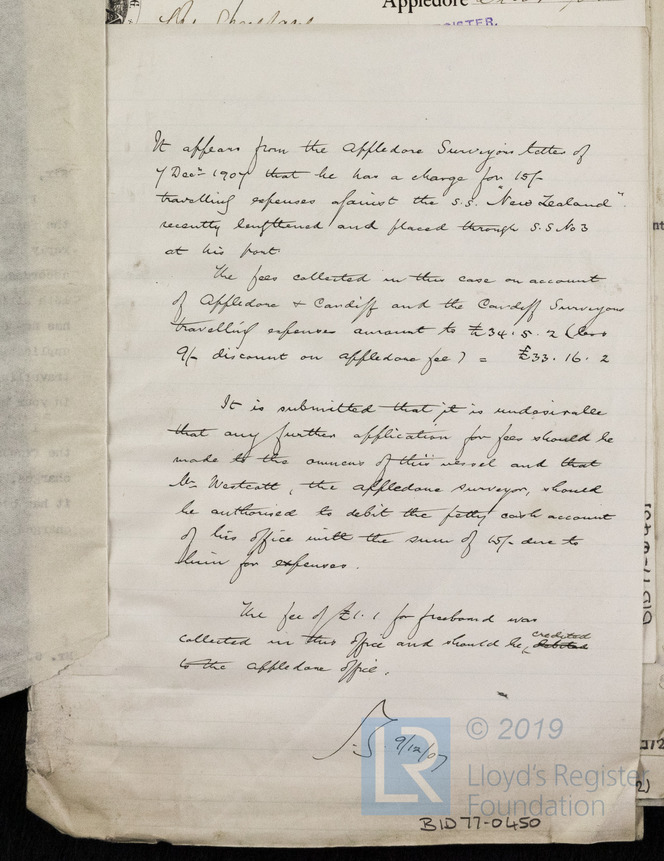 Appledore
It appears from the Appledore Surveyors letter of
7 Decr 1907 that he has a charge for 15/-
travelling expenses against the S.S. "New Zealand"
recently lengthened and placed through S.S. No 3
at his port.
The fees collected in this case on account
of Appledore & Cardiff and the Cardiff Surveyors
travelling expenses amount to £34.5.2 (less
9/- discount on Appledore fee) = £33.16.2
It is submitted that it is undesirable
that any further application for fees should be
made to the owners of this vessel and that
Mr Westcott, the Appledore Surveyor, should
be authorised to debit the petty cash account
of his office with the sum of 15/- due to
him for expenses.
The fee of £1.1 for freeboard was
collected in this office and should be credited debited
to the Appledore office.
9/12/07
© 2019
LR
Lloyd's Register
Foundation
BID77-0450